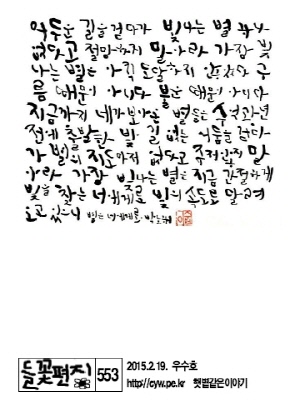 어두운 길을 걷다가 빛나는 별 하나
없다고 절망하지 말아라 가장 빛
나는 별은 아직 도달하지 않았다 구
름 때문이 아니다 불운 때문이 아니다
지금까지 네가 보아온 별들은 수억광년
전에 출발한 빛 길 없는 어둠을 걷다
가 별의 지도마저 없다고 주저앉지 말
아라 가장 빛나는 별은 지금 간절하게
빛을 찾는 너에게로 빛의 속도로 달려
오고 있으니 별은 너에게로 박노해
들꽃편지 553 2015.2.19. 우수호
http://cyw.pe.kr 햇볕같은이야기